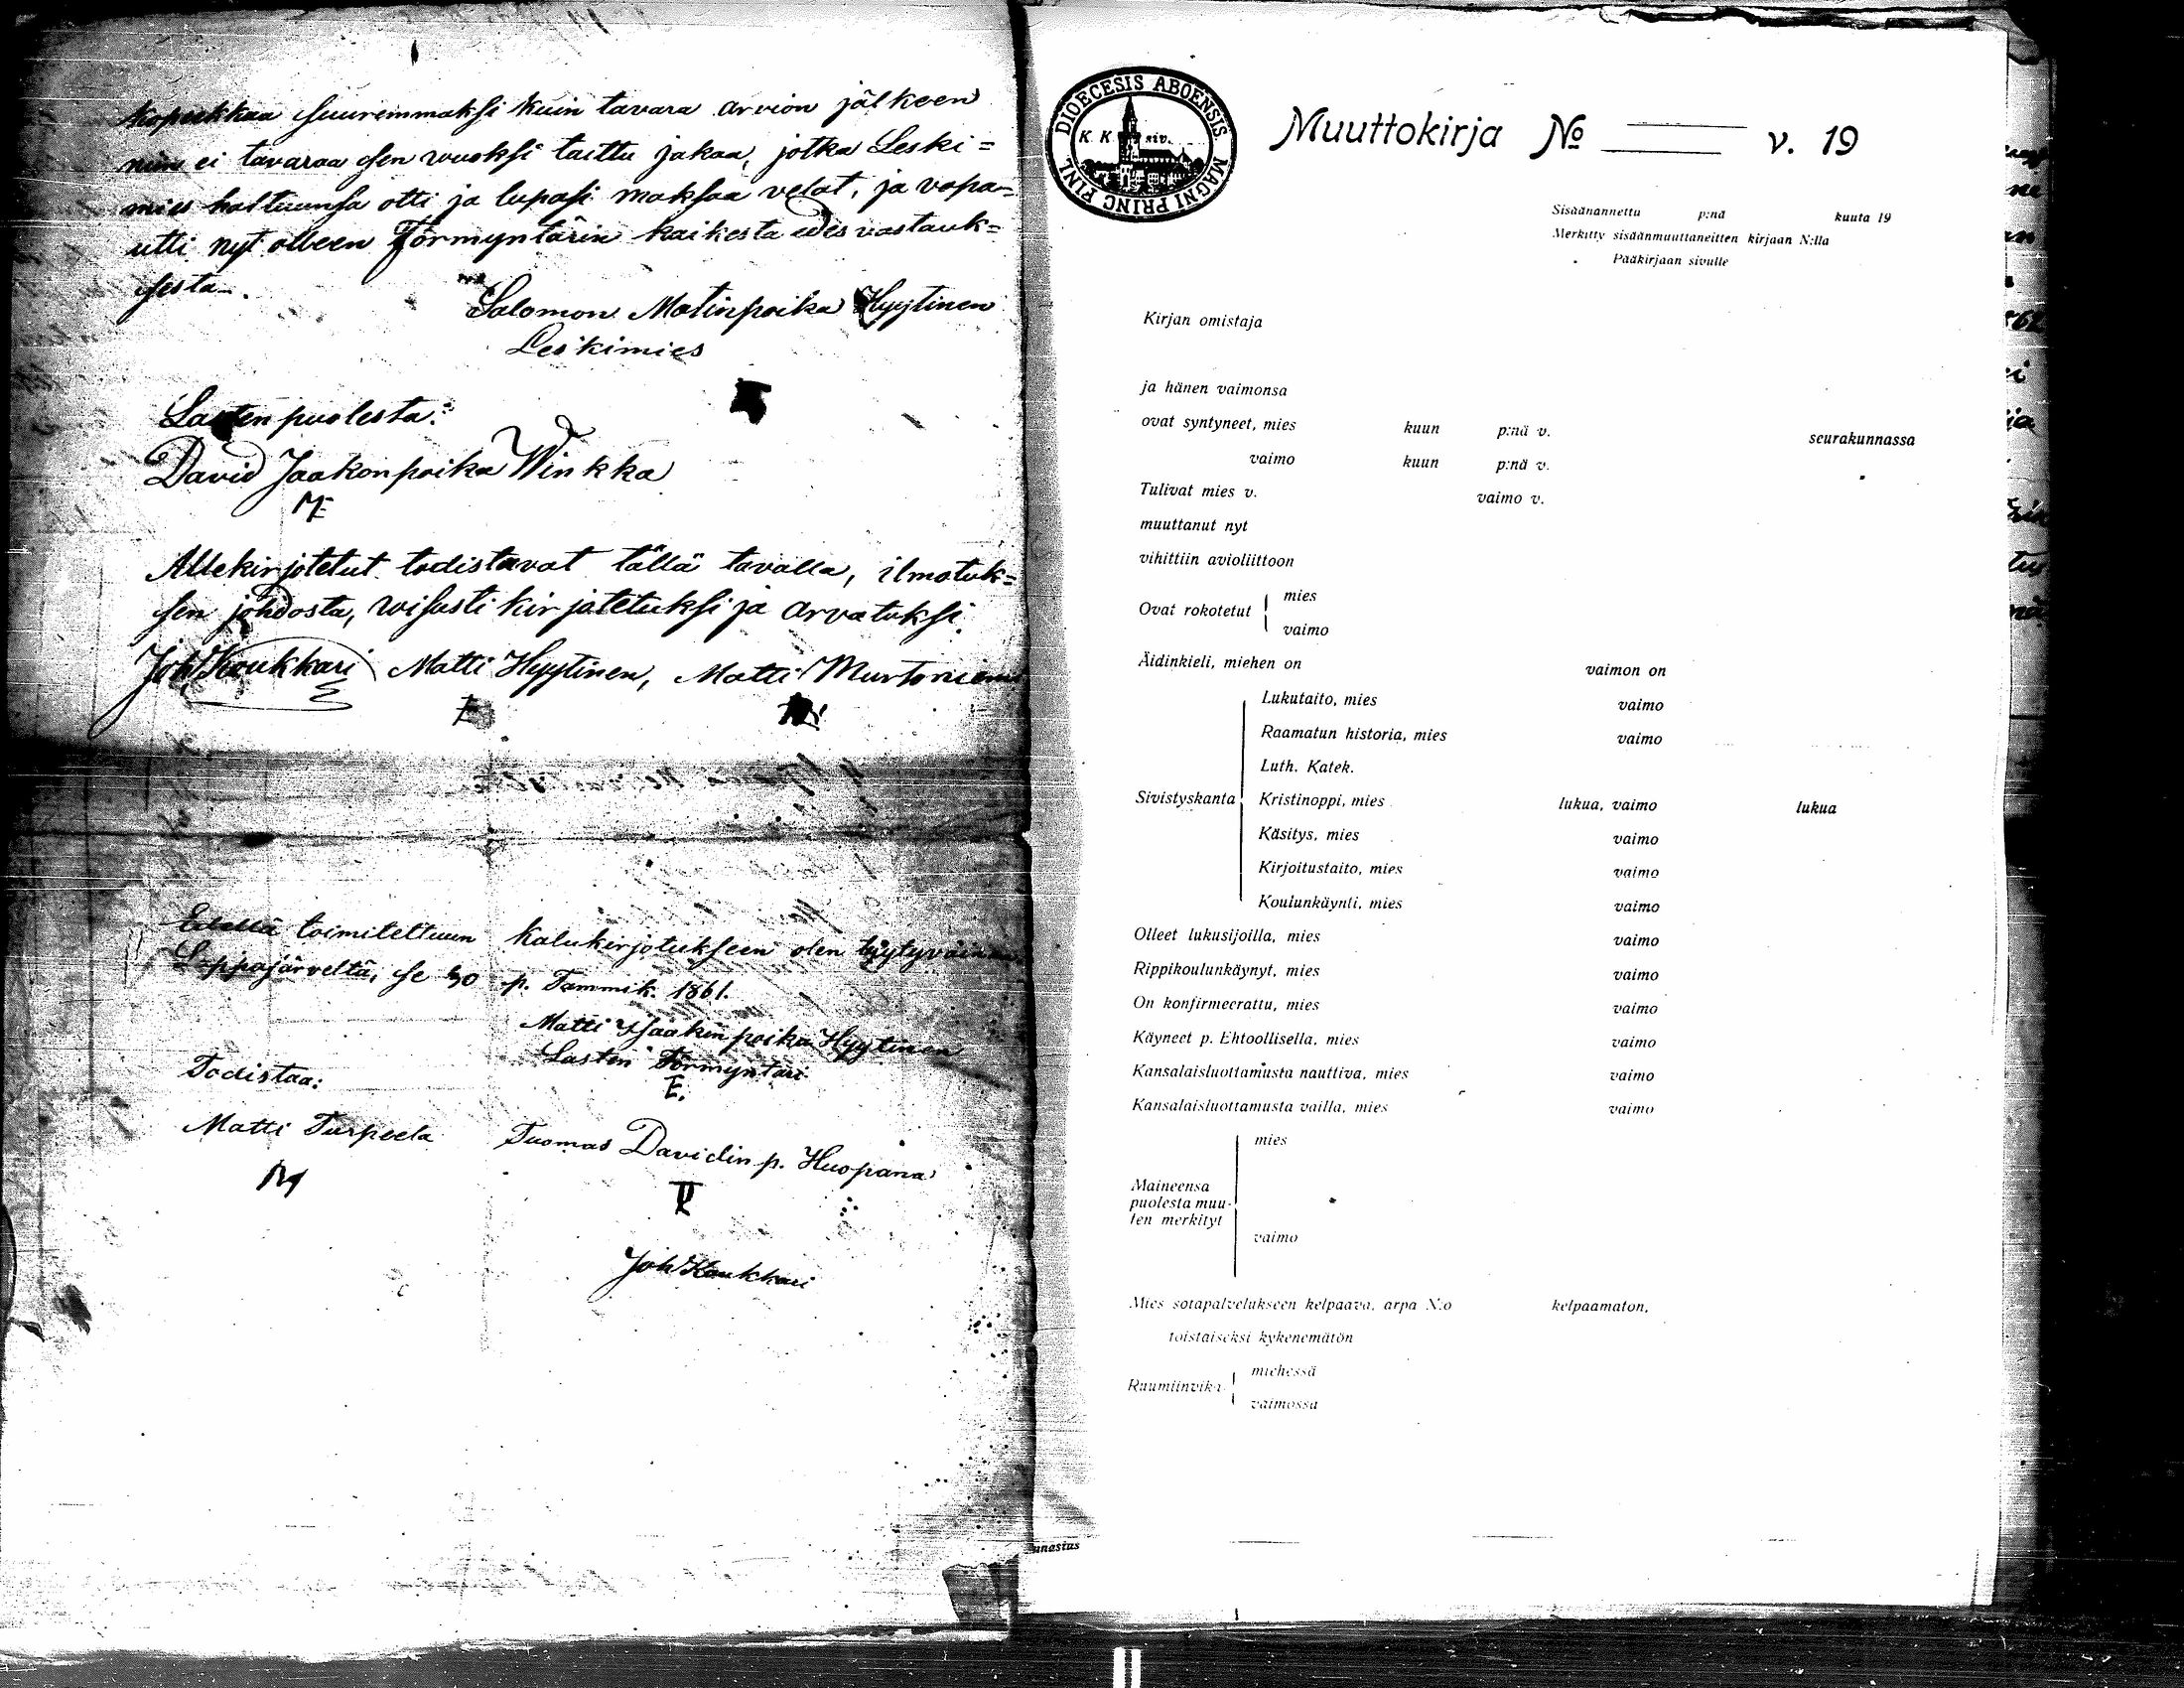 kopeekkaa suuremmaksi kuin tavara arvion jälkeen
niin ei tavaraa sen wuoksi taittu jakaa, jotka Leski=
mies haltuunsa otti ja lupasi maksaa velat, ja vapa=
utti nyt olleen Förmyntärin kaikesta edesvastauk=
sesta.
Salomon Matinpoika Hyytinen
Leskimies
Lasten puolesta:
David Jaakonpoika Winkka
Allekirjotetut todistavat tällä tavalla, ilmotuk=
sen johdosta, wisusti kirjotetuksi ja arvatuksi.
Joh Koukkari Matti Hyytinen, Matti Murtoniemi
Edellä toimitettuun kalukirjotukseen olen tyytyväinen
Lappajärveltä, se 30 p. Tammik. 1861.
Matti Isaakinpoika Hyytinen
Lasten Förmyntäri
E.
Todistaa:
Matti Turpeela Tuomas Davidin p. Huopana
Joh Koukkari
DIOECESIS ABOENSIS MAGNI PRINC FINL
K. K. siv.
Muuttokirja No v. 19
Sisäänannettu p:nä kuuta 19
Merkitty sisäänmuuttaneitten kirjaan N:lla
Pääkirjaan sivulle
Kirjan omistaja
ja hänen vaimonsa
ovat syntyneet, mies kuun p:nä v. seurakunnassa
vaimo kuun p:nä v.
Tulivat mies v. vaimo v.
muuttanut nyt
vihittiin avioliittoon
Ovat rokotetut mies
vaimo
Äidinkieli, miehen on vaimon on
Sivistyskanta
Lukutaito, mies vaimo
Raamatun historia, mies vaimo
Luth. Katek.
Kristinoppi, mies lukua, vaimo lukua
Käsitys, mies vaimo
Kirjoitustaito, mies vaimo
Koulunkäynti, mies vaimo
Olleet lukusijoilla, mies vaimo
Rippikoulunkäynyt, mies vaimo
On konfirmeerattu, mies vaimo
Käyneet p. Ehtoollisella, mies vaimo
Kansalaisluottamusta nauttiva, mies vaimo
Kansalaisluottamusta vailla, mies vaimo
Maineensa
puolesta muu-
ten merkityt
mies
vaimo
Mies sotapalvelukseen kelpaava, arpa N:o kelpaamaton,
toistaiseksi kykenemätön
Ruumiinvika miehessä
vaimossa